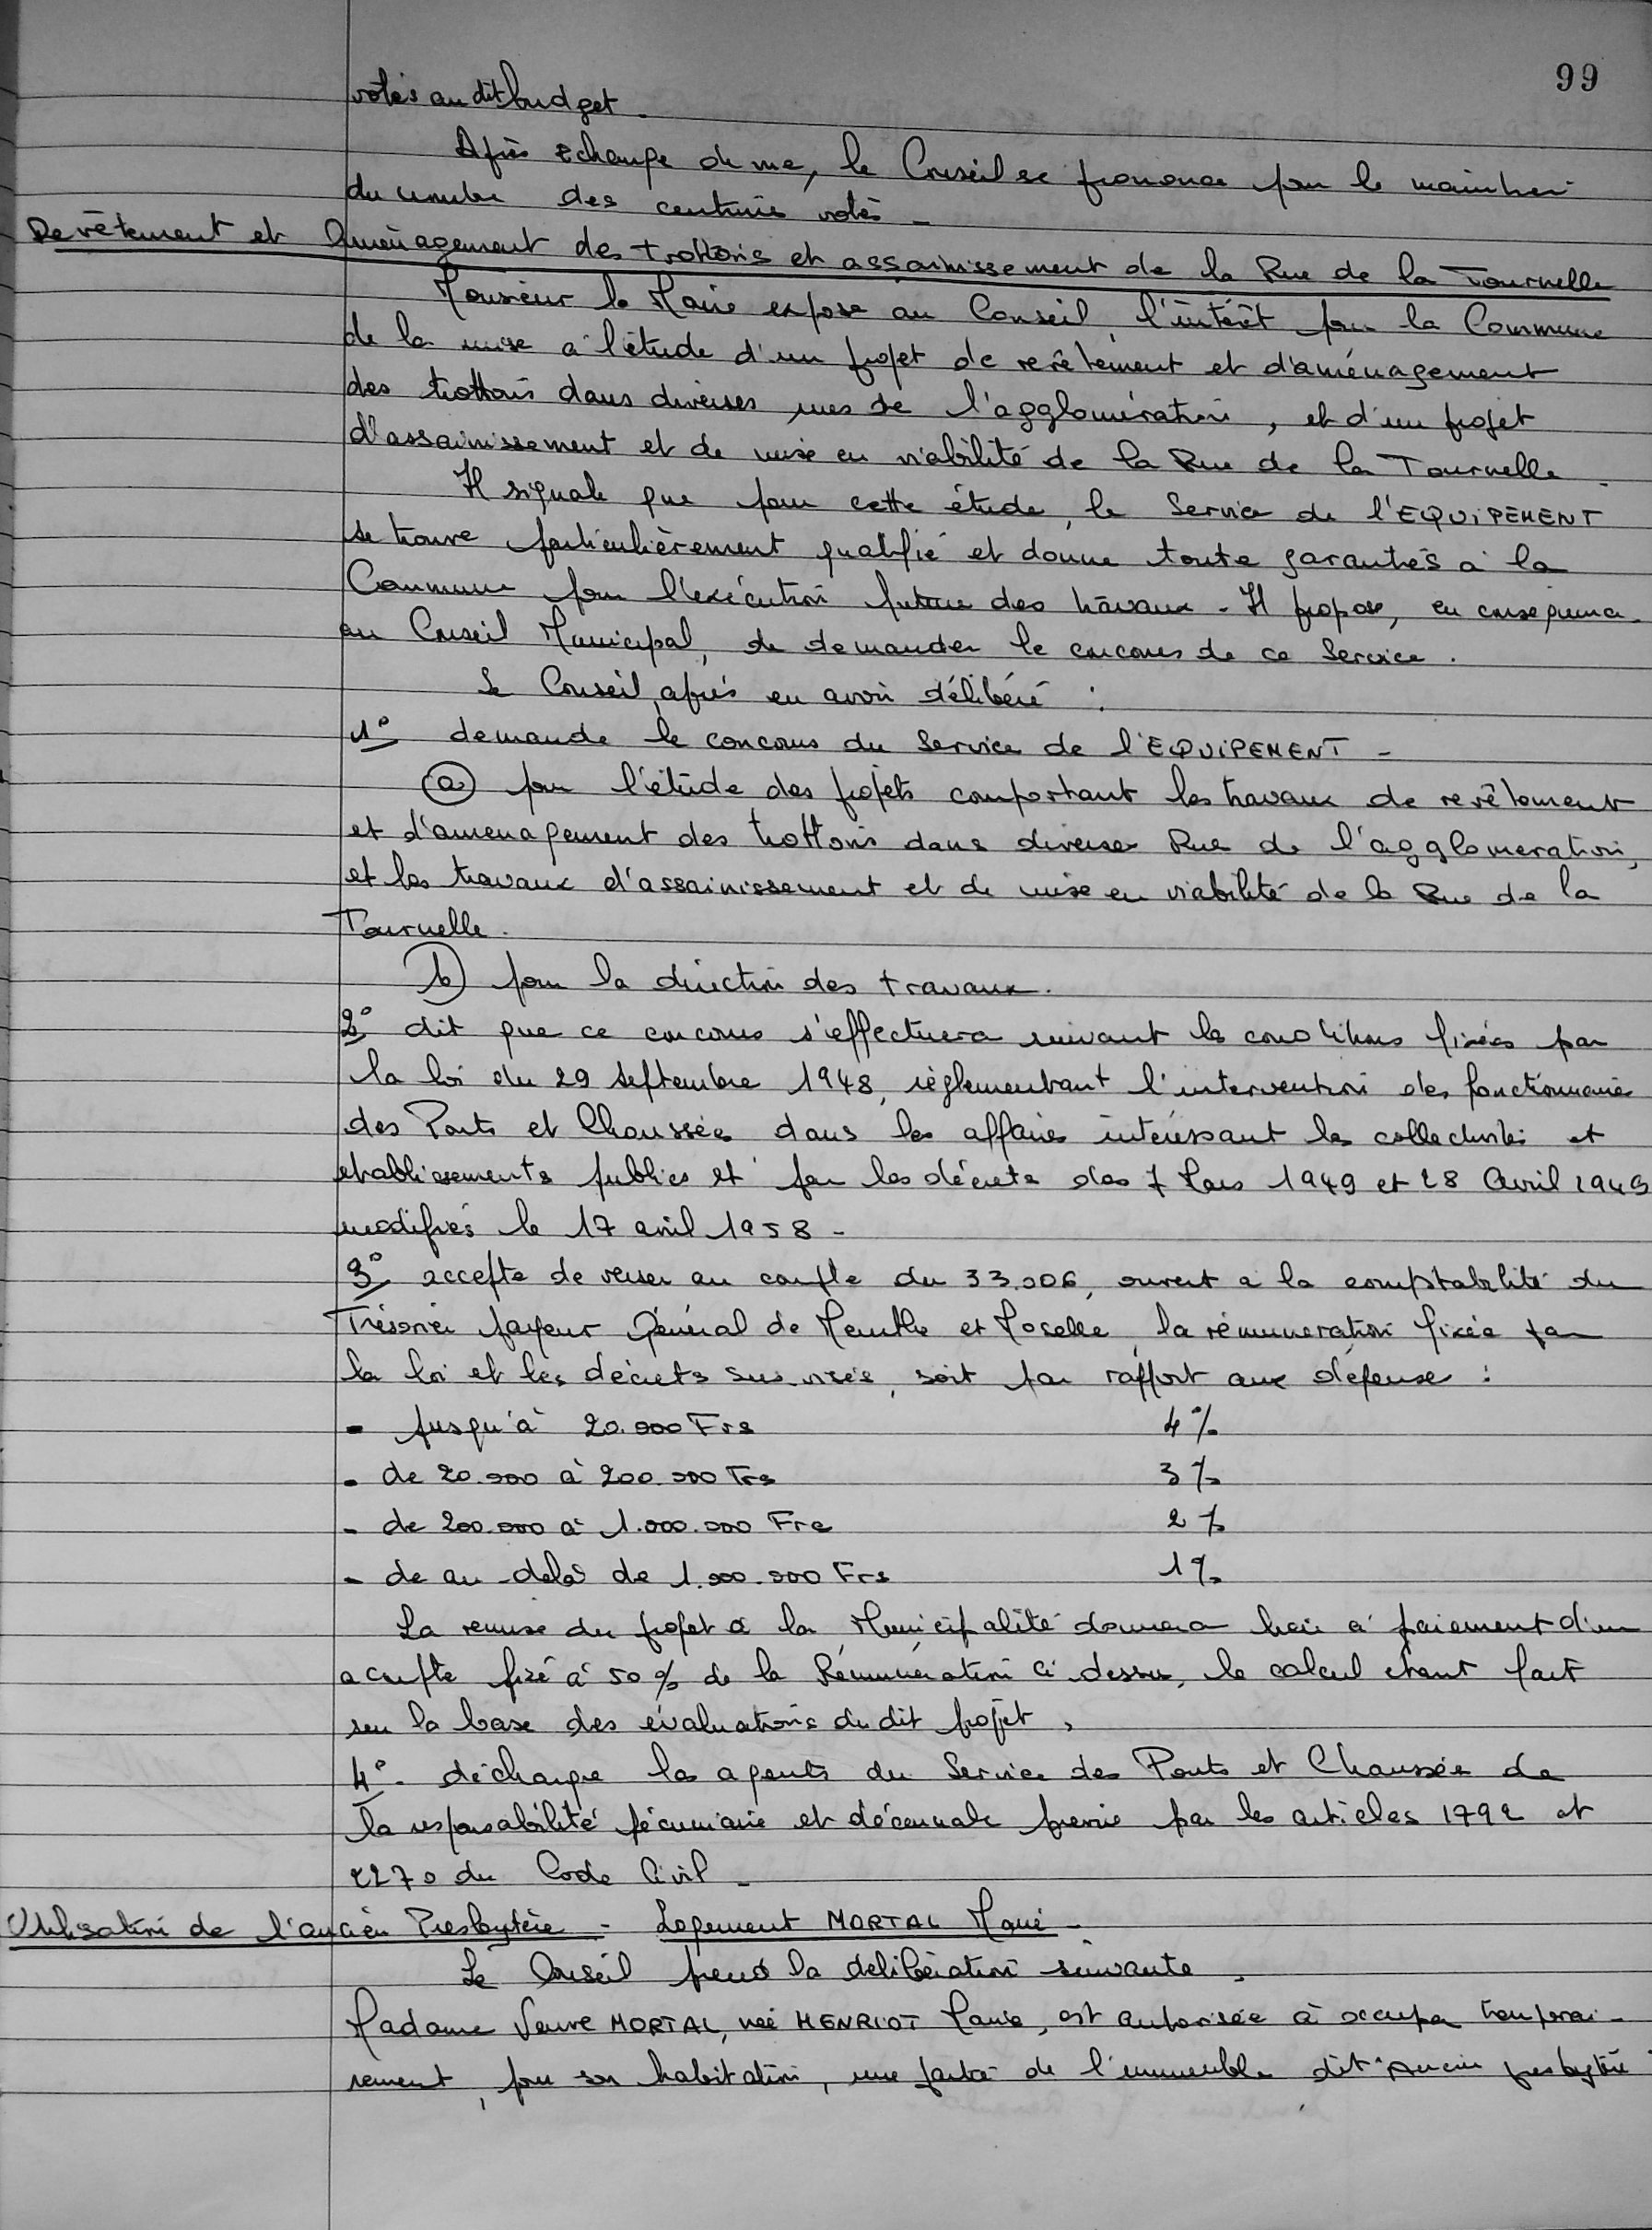 99
votés au dit budget.
Après échange de vue, le Conseil se prononce pour le maintien
du nombre des centimes votés -
Revêtement et Aménagement des trottoirs et assainissement de la Rue de la Tournelle
Monsieur le Maire expose au Conseil, l'intérêt pour la Commune
de la mise à l'étude d'un projet de revêtement et d'aménagement
des trottoirs dans diverses rues de l'agglomération, et d'un projet
d'assainissement et de mise en viabilité de la Rue de la Tournelle.
Il signale que pour cette étude, le Service de l'EQUIPEMENT
se trouve particulièrement qualifié et donne toute garanties à la
Commune pour l'exécution future des travaux - Il propose, en conséquence
au Conseil Municipal, de demander le concours de ce Service.
Le Conseil, après en avoir délibéré :
1° demande le concours du Service de l'EQUIPEMENT -
(a) pour l'étude des projets comportant les travaux de revêtement
et d'aménagement des trottoirs dans diverses Rues de l'agglomération,
et les travaux d'assainissement et de mise en viabilité de la Rue de la
Tournelle.
b) pour la direction des travaux.
2° dit que ce concours s'effectuera suivant les conditions fixées par
la loi du 29 Septembre 1948, règlementant l'intervention des fonctionnaires
des Ponts et Chaussées dans les affaires intéressant les collectivités et
etablissements publics et par les décrets des 7 Mars 1949 et 28 Avril 1949
modifiés le 17 avril 1958 -
3° accepte de verser au compte du 33.006, ouvert à la comptabilité du
Trésorier payeur Général de Meurthe et Moselle, la rémunération fixée par
la loi et les décrets sus-visés, soit par rapport aux dépenses :
- jusqu'à 20.000 Frs 4 %
- de 20.000 à 200.000 Frs 3 %
- de 200.000 à 1.000.000 Frs 2 %
- de au-delà de 1.000.000 Frs 1 %
La remise du projet à la Municipalité donnera lieu à paiement d'un
acompte fixé à 50 % de la Rémunération ci-dessus, le calcul étant fait
sur la base des évaluations du dit projet,
4° - décharge les agents du Service des Ponts et Chaussées de
la responsabilité pécuniaire et décennale prévue par les articles 1792 et
2270 du Code Civil -
Utilisation de l'ancien Presbytère - Logement MORTAL Marie -
Le Conseil prend la délibération suivante,
Madame Veuve MORTAL, née HENRIOT Marie, est autorisée à occuper temporai-
rement, pour son habitation, une partie de l'immeuble dit "Ancien presbytère"